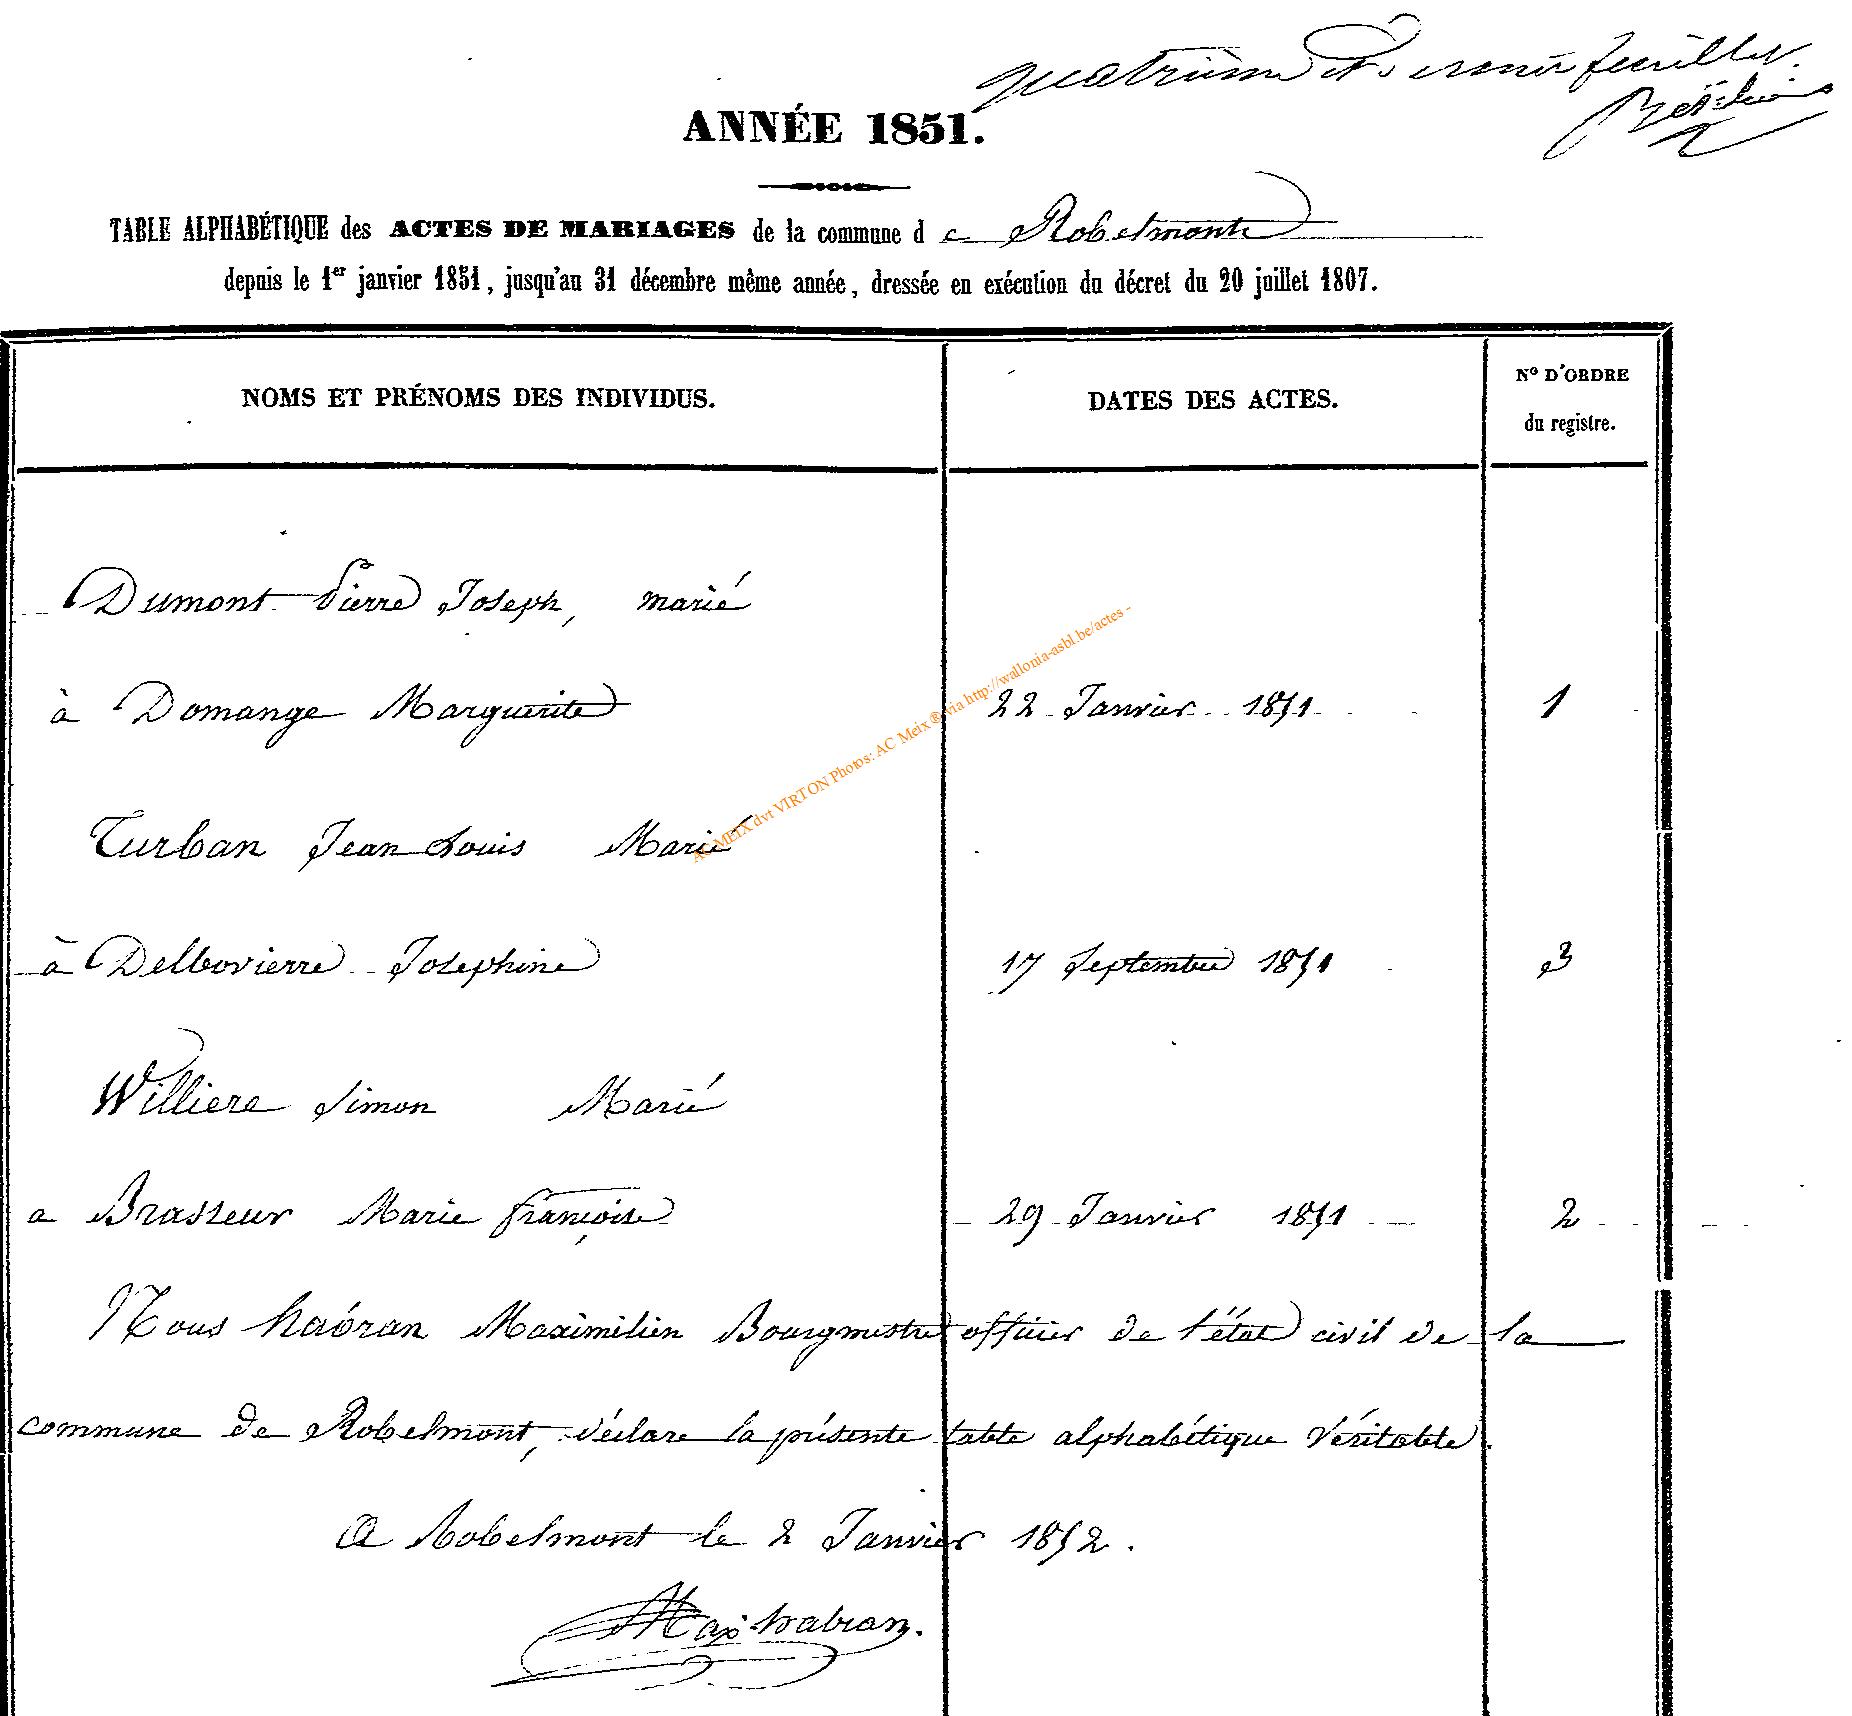 quatrième et dernier feuillet.
ANNÉE 1851.
TABLE ALPHABÉTIQUE des ACTES DE MARIAGES de la commune d e Robelmont
depuis le 1er janvier 1851, jusqu'au 31 décembre même année, dressée en exécution du décret du 20 juillet 1807.
NOMS ET PRÉNOMS DES INDIVIDUS. DATES DES ACTES. No D'ORDRE
du registre.
Dumont Pierre Joseph, marié
à Domange Marguerite 22 Janvier 1851 1
Turban Jean Louis Marié
à Delbovierre Josephine 17 Septembre 1851 3
Williere Simon Marié
a Brasseur Marie françoise 29 Janvier 1851 2
Nous habran Maximilien Bourgmestre officier de l'état civil de la
commune de Robelmont, déclare la présente table alphabétique véritable.
A Robelmont le 2 Janvier 1852.
Max habran.
AC MEIX dvt VIRTON Photos: AC Meix ® via http://wallonia-asbl.be/actes -